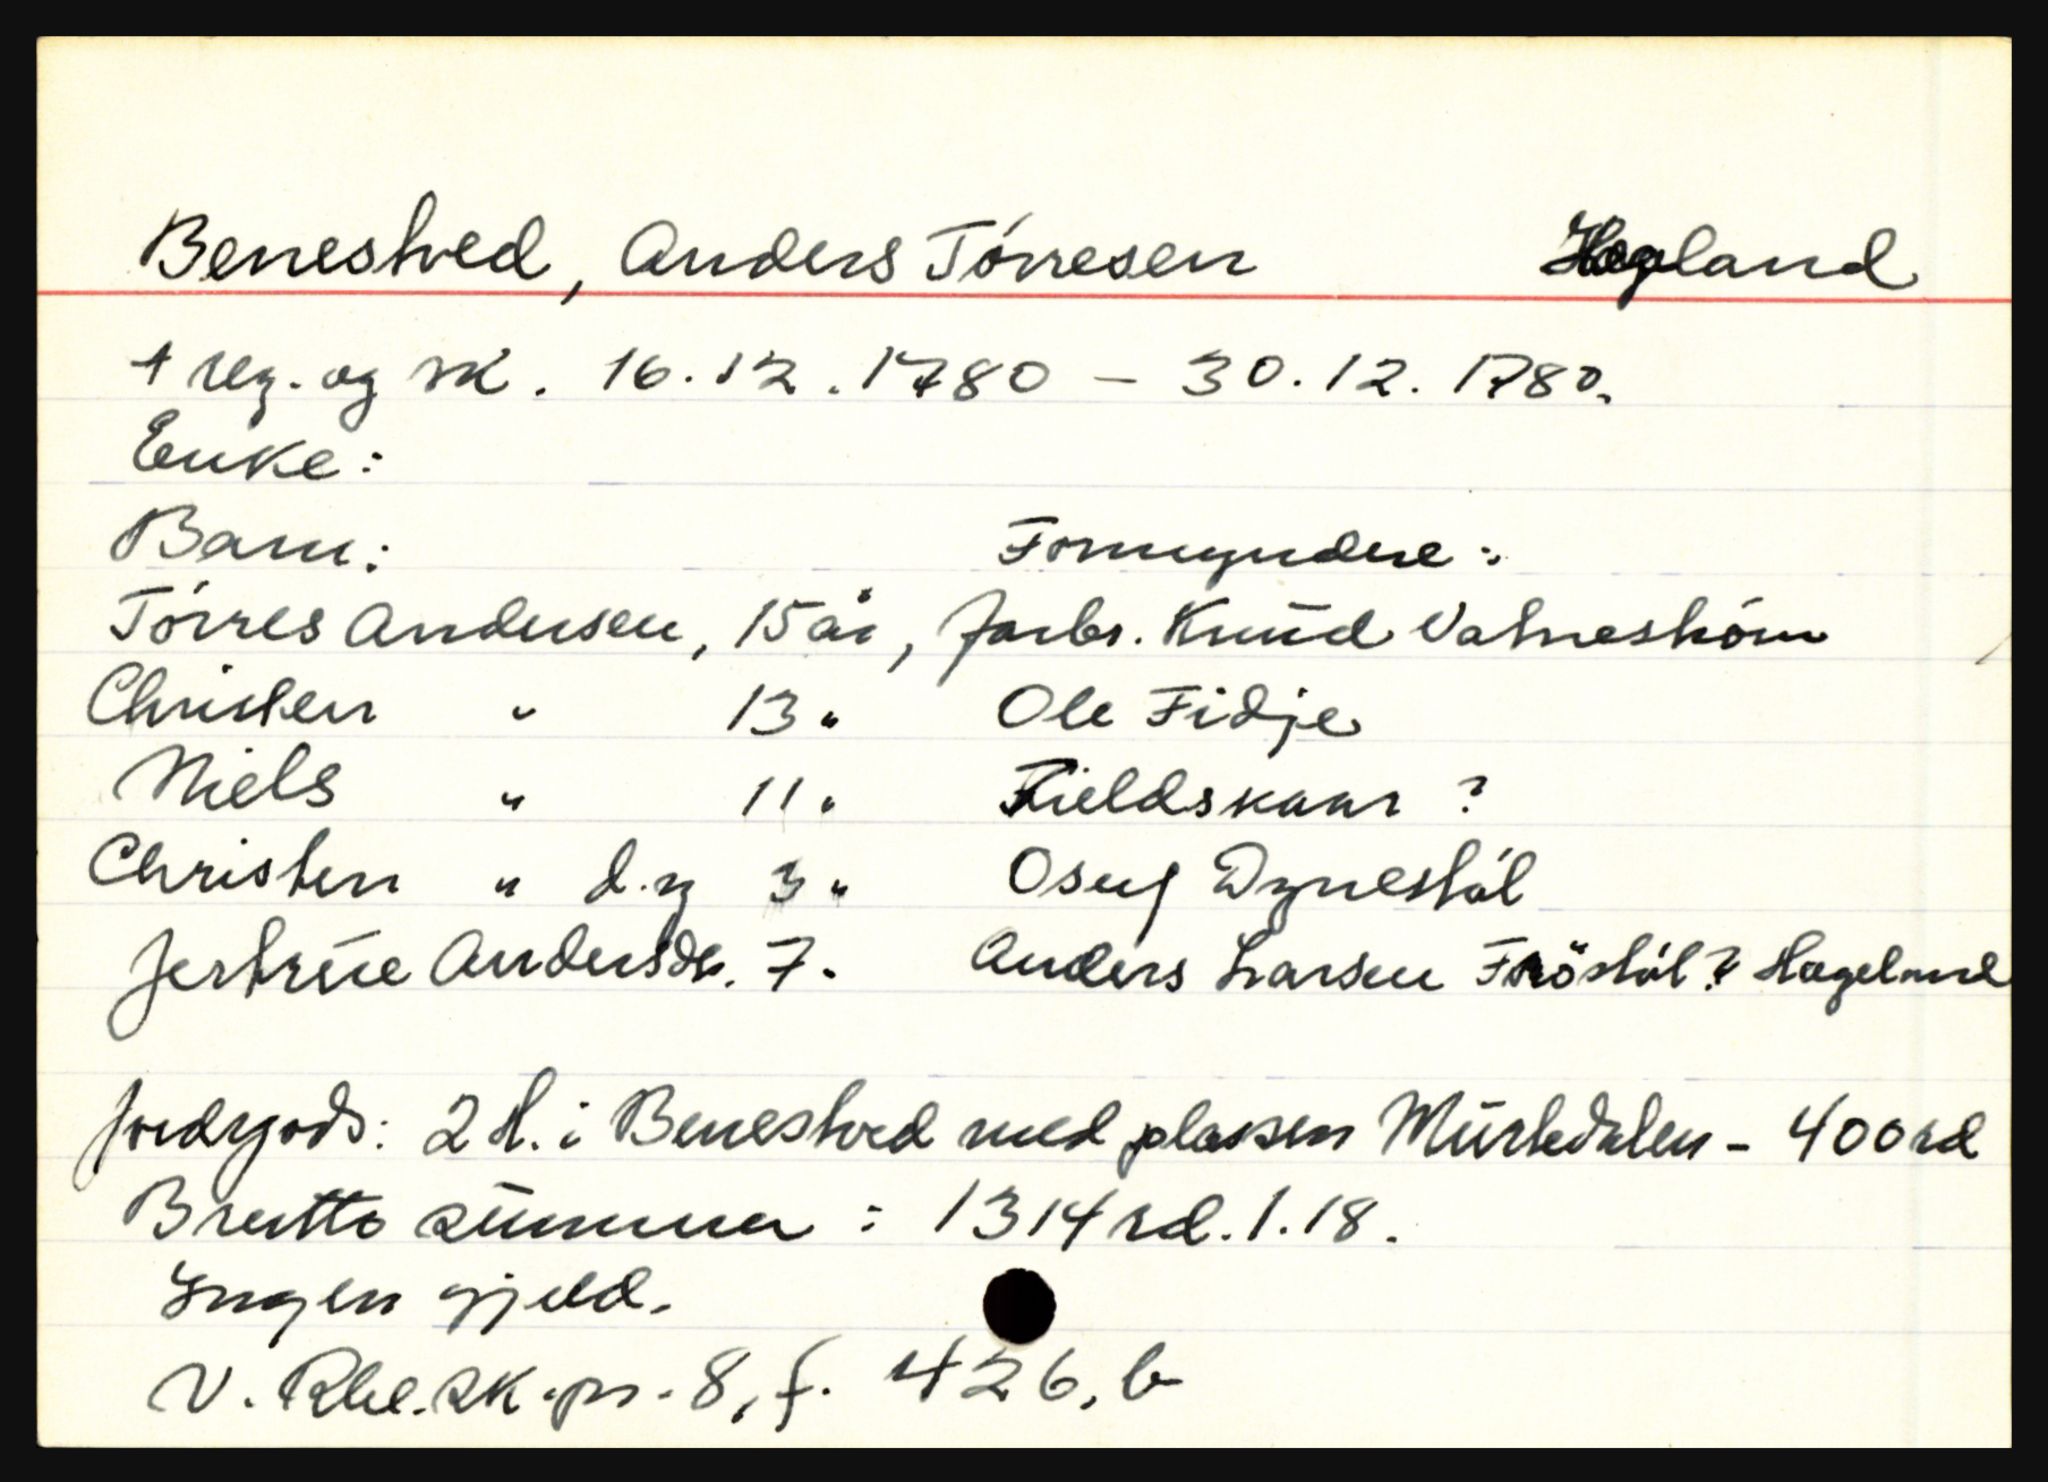 Benestved, Anders Tórresen Hægeland
† reg. og sk. 16.12.1780 – 30.12.1780.
Enke:
Barn: Formyndere:
Tórres Andersen, 15 år, farbr. Knūd Vatneström
Christen " 13 " Ole Fidje
Niels " 11 " Fieldskaar ?
Christen " d.y 3 " Osuf Dynestöl
Jertrūe Andersdr. 7. Anders Larsen Fröstöl? Hægeland
Jordgods: 2 H. i Benestved med plassen Mürkdalen – 400 rd
Brutto sūmma : 1314 rd. 1. 18.
Ingen gjeld.
V. Rbl. sk. pr. 8, f. 426, b